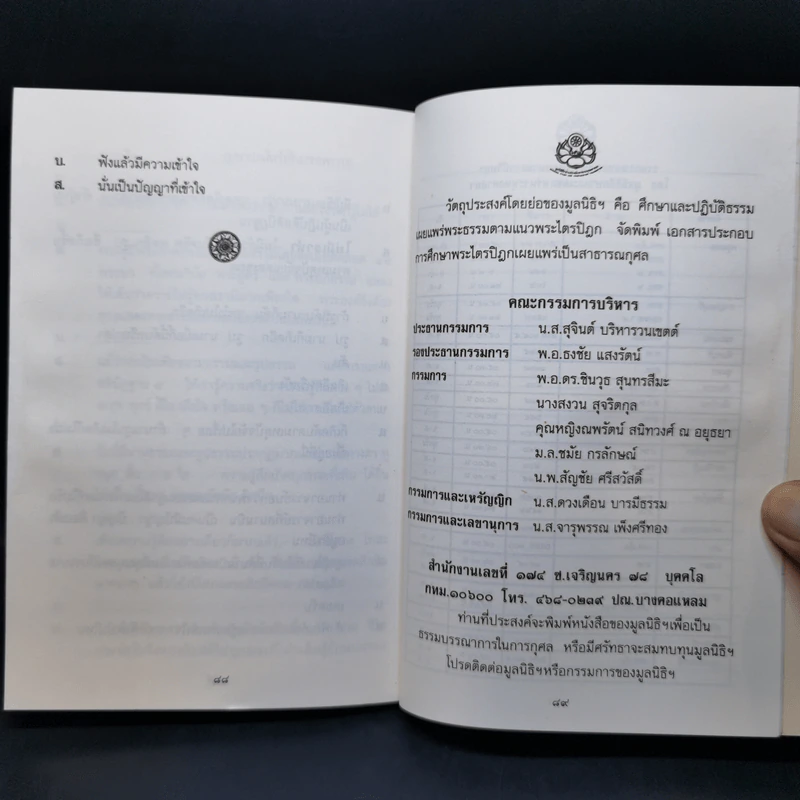 บ. ฟังแล้วมีความเข้าใจ
ส. นั่นเป็นปัญญาที่เข้าใจ
๘๘
วัตถุประสงค์โดยย่อของมูลนิธิฯ คือ ศึกษาและปฏิบัติธรรม
เผยแพร่พระธรรมตามแนวพระไตรปิฎก จัดพิมพ์ เอกสารประกอบ
การศึกษาพระไตรปิฎกเผยแพร่เป็นสาธารณกุศล
คณะกรรมการบริหาร
ประธานกรรมการ น.ส.สุจินต์ บริหารวนเขตต์
รองประธานกรรมการ พ.อ.ธงชัย แสงรัตน์
กรรมการ พ.อ.ดร.ชินวุธ สุนทรสีมะ
นางสงวน สุจริตกุล
คุณหญิงณพรัตน์ สนิทวงศ์ ณ อยุธยา
ม.ล.ชมัย กรลักษณ์
น.พ.สัญชัย ศรีสวัสดิ์
กรรมการและเหรัญญิก น.ส.ดวงเดือน บารมีธรรม
กรรมการและเลขานุการ น.ส.จารุพรรณ เพ็งศรีทอง
สำนักงานเลขที่ ๑๗๔ ซ.เจริญนคร ๗๘ บุคคโล
กทม.๑๐๖๐๐ โทร. ๔๖๘-๐๒๓๙ ปณ.บางคอแหลม
ท่านที่ประสงค์จะพิมพ์หนังสือของมูลนิธิฯเพื่อเป็น
ธรรมบรรณาการในการกุศล หรือมีศรัทธาจะสมทบทุนมูลนิธิฯ
โปรดติดต่อมูลนิธิฯหรือกรรมการของมูลนิธิฯ
๘๙